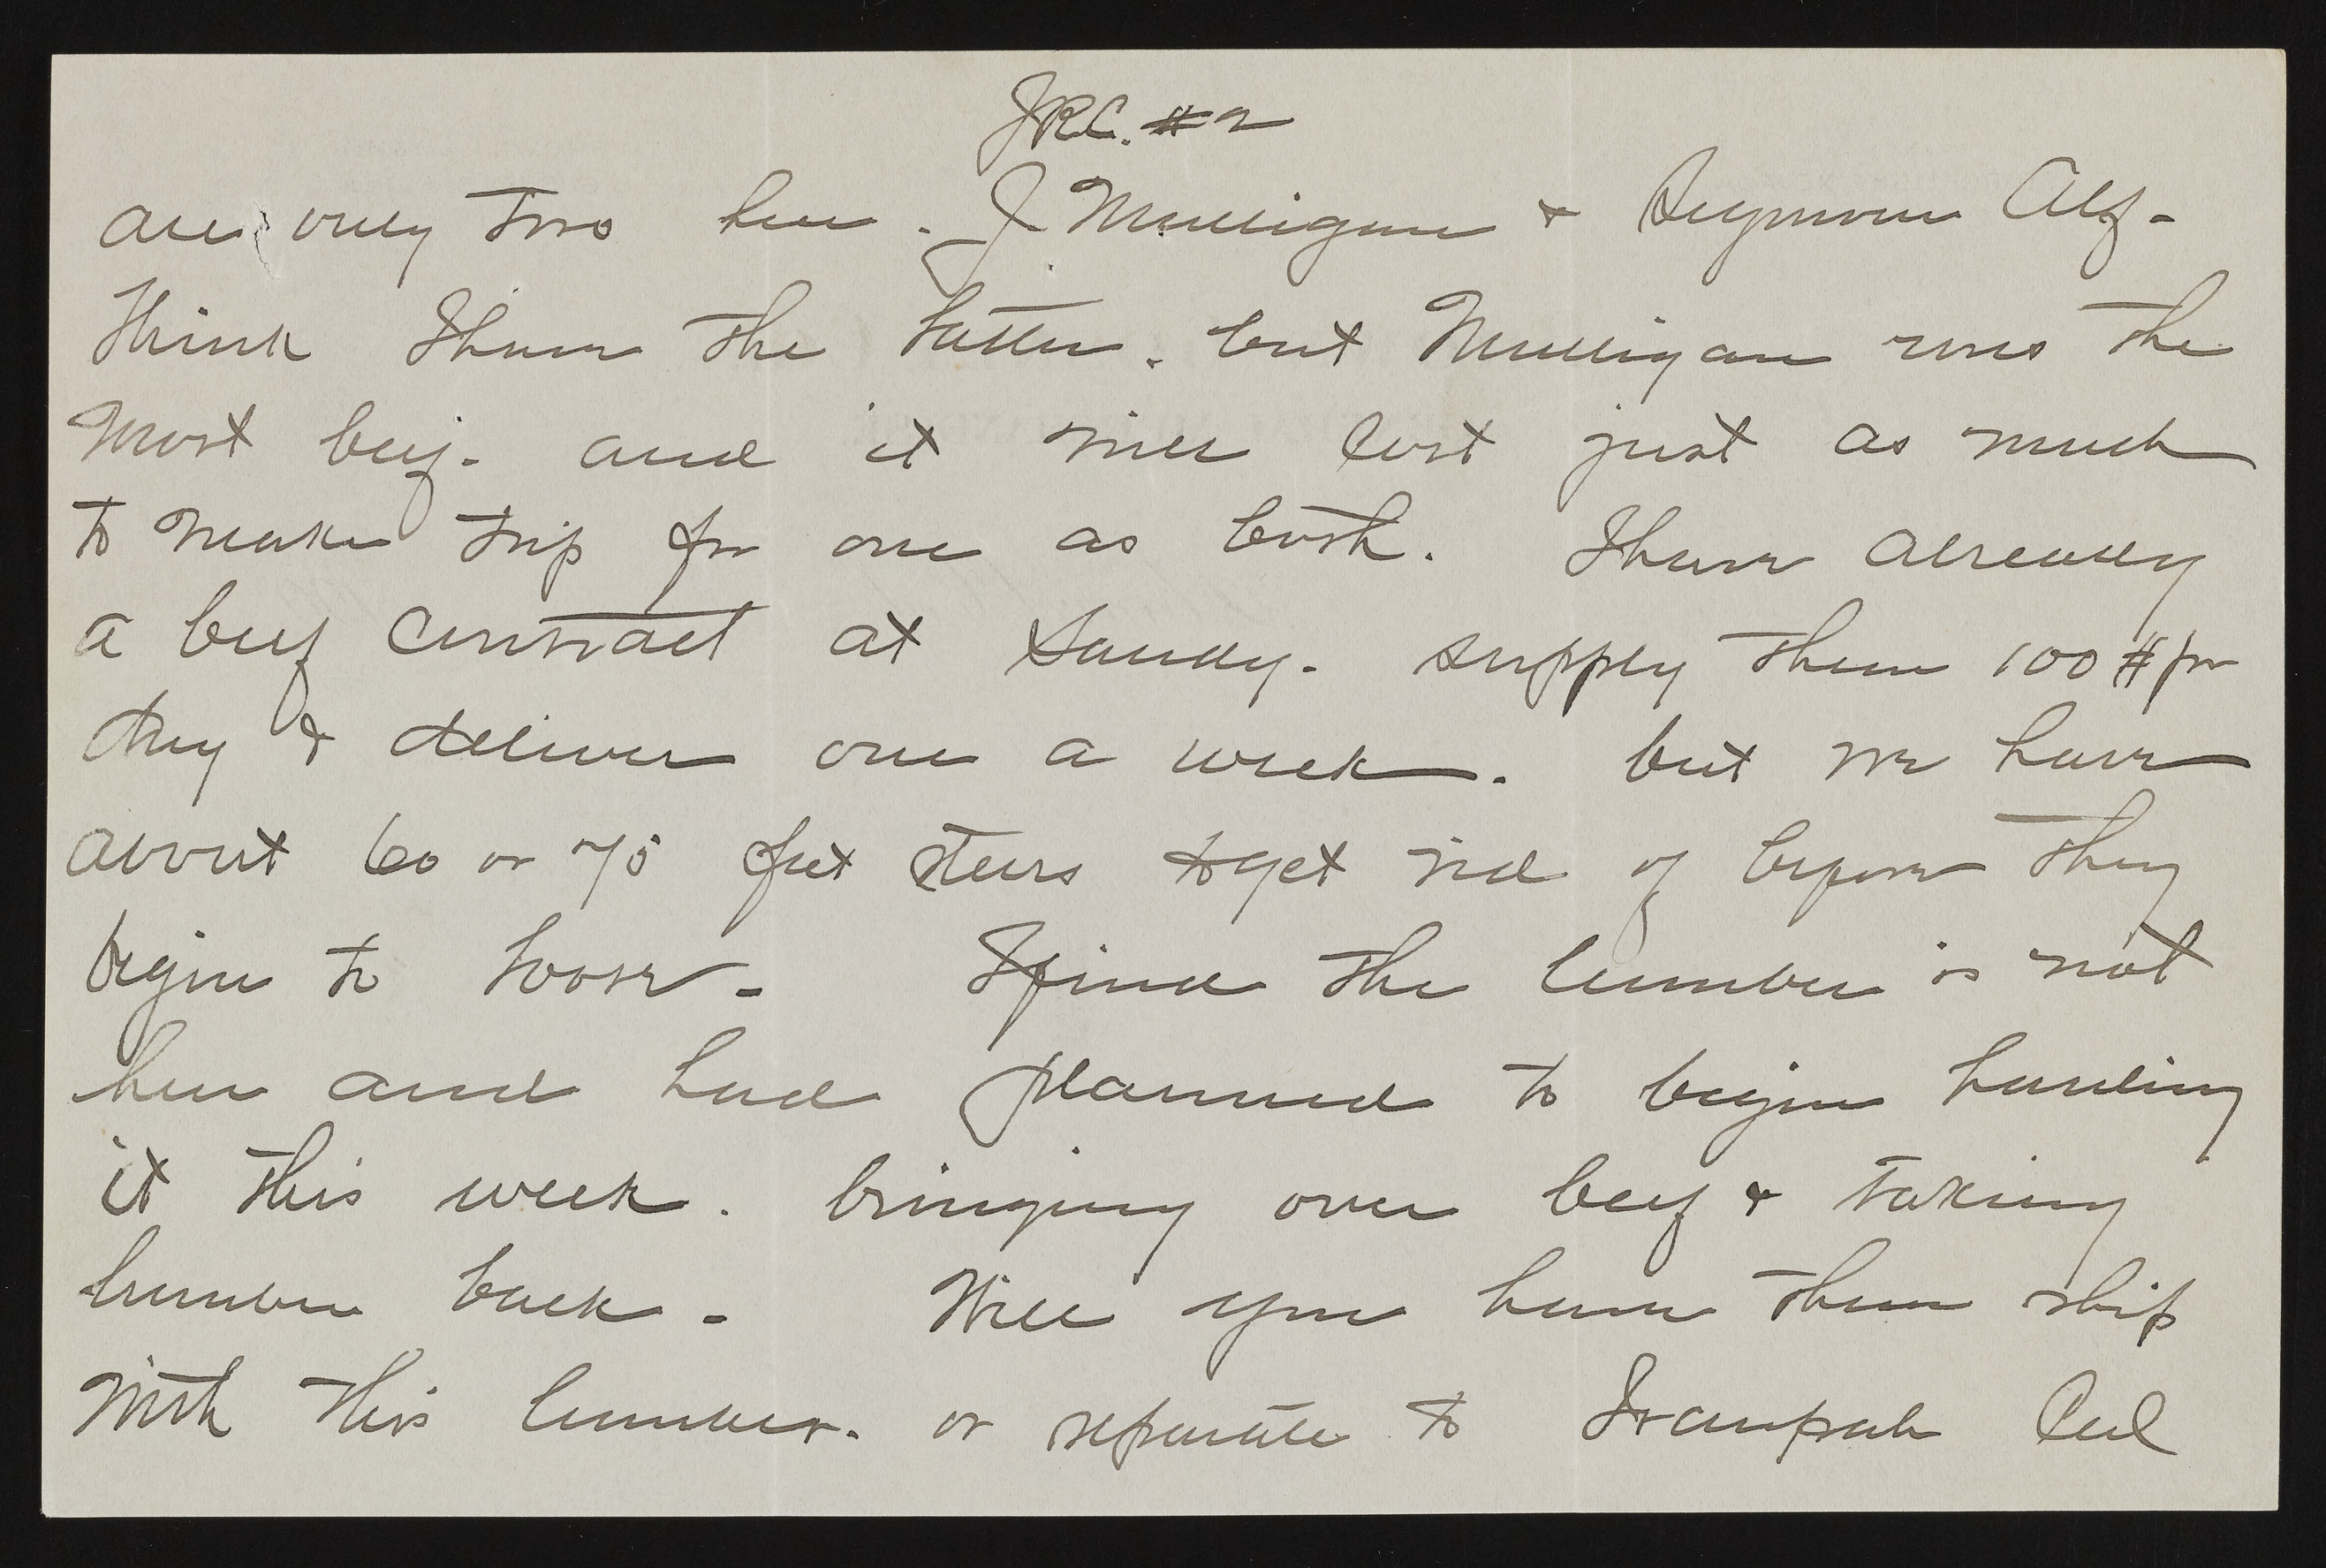 JRC. #2
are only two here. J Mulligan & Seymour Alf-
think I have the latter. but Mulligan uses the
most beef. and it will cost just as much
to make trip for one as both. I have already
a beef contract at Sandy. supply them 100# per
day & deliver one a week. but we have
about 60 or 75 fat steers to get rid of before they
begin to loose- I find the lumber is not
here and had planned to begin hauling
it this week. bringing over beef & taking
lumber back- Will you have them ship
with this lumber. or separate to Ivanpah Cal